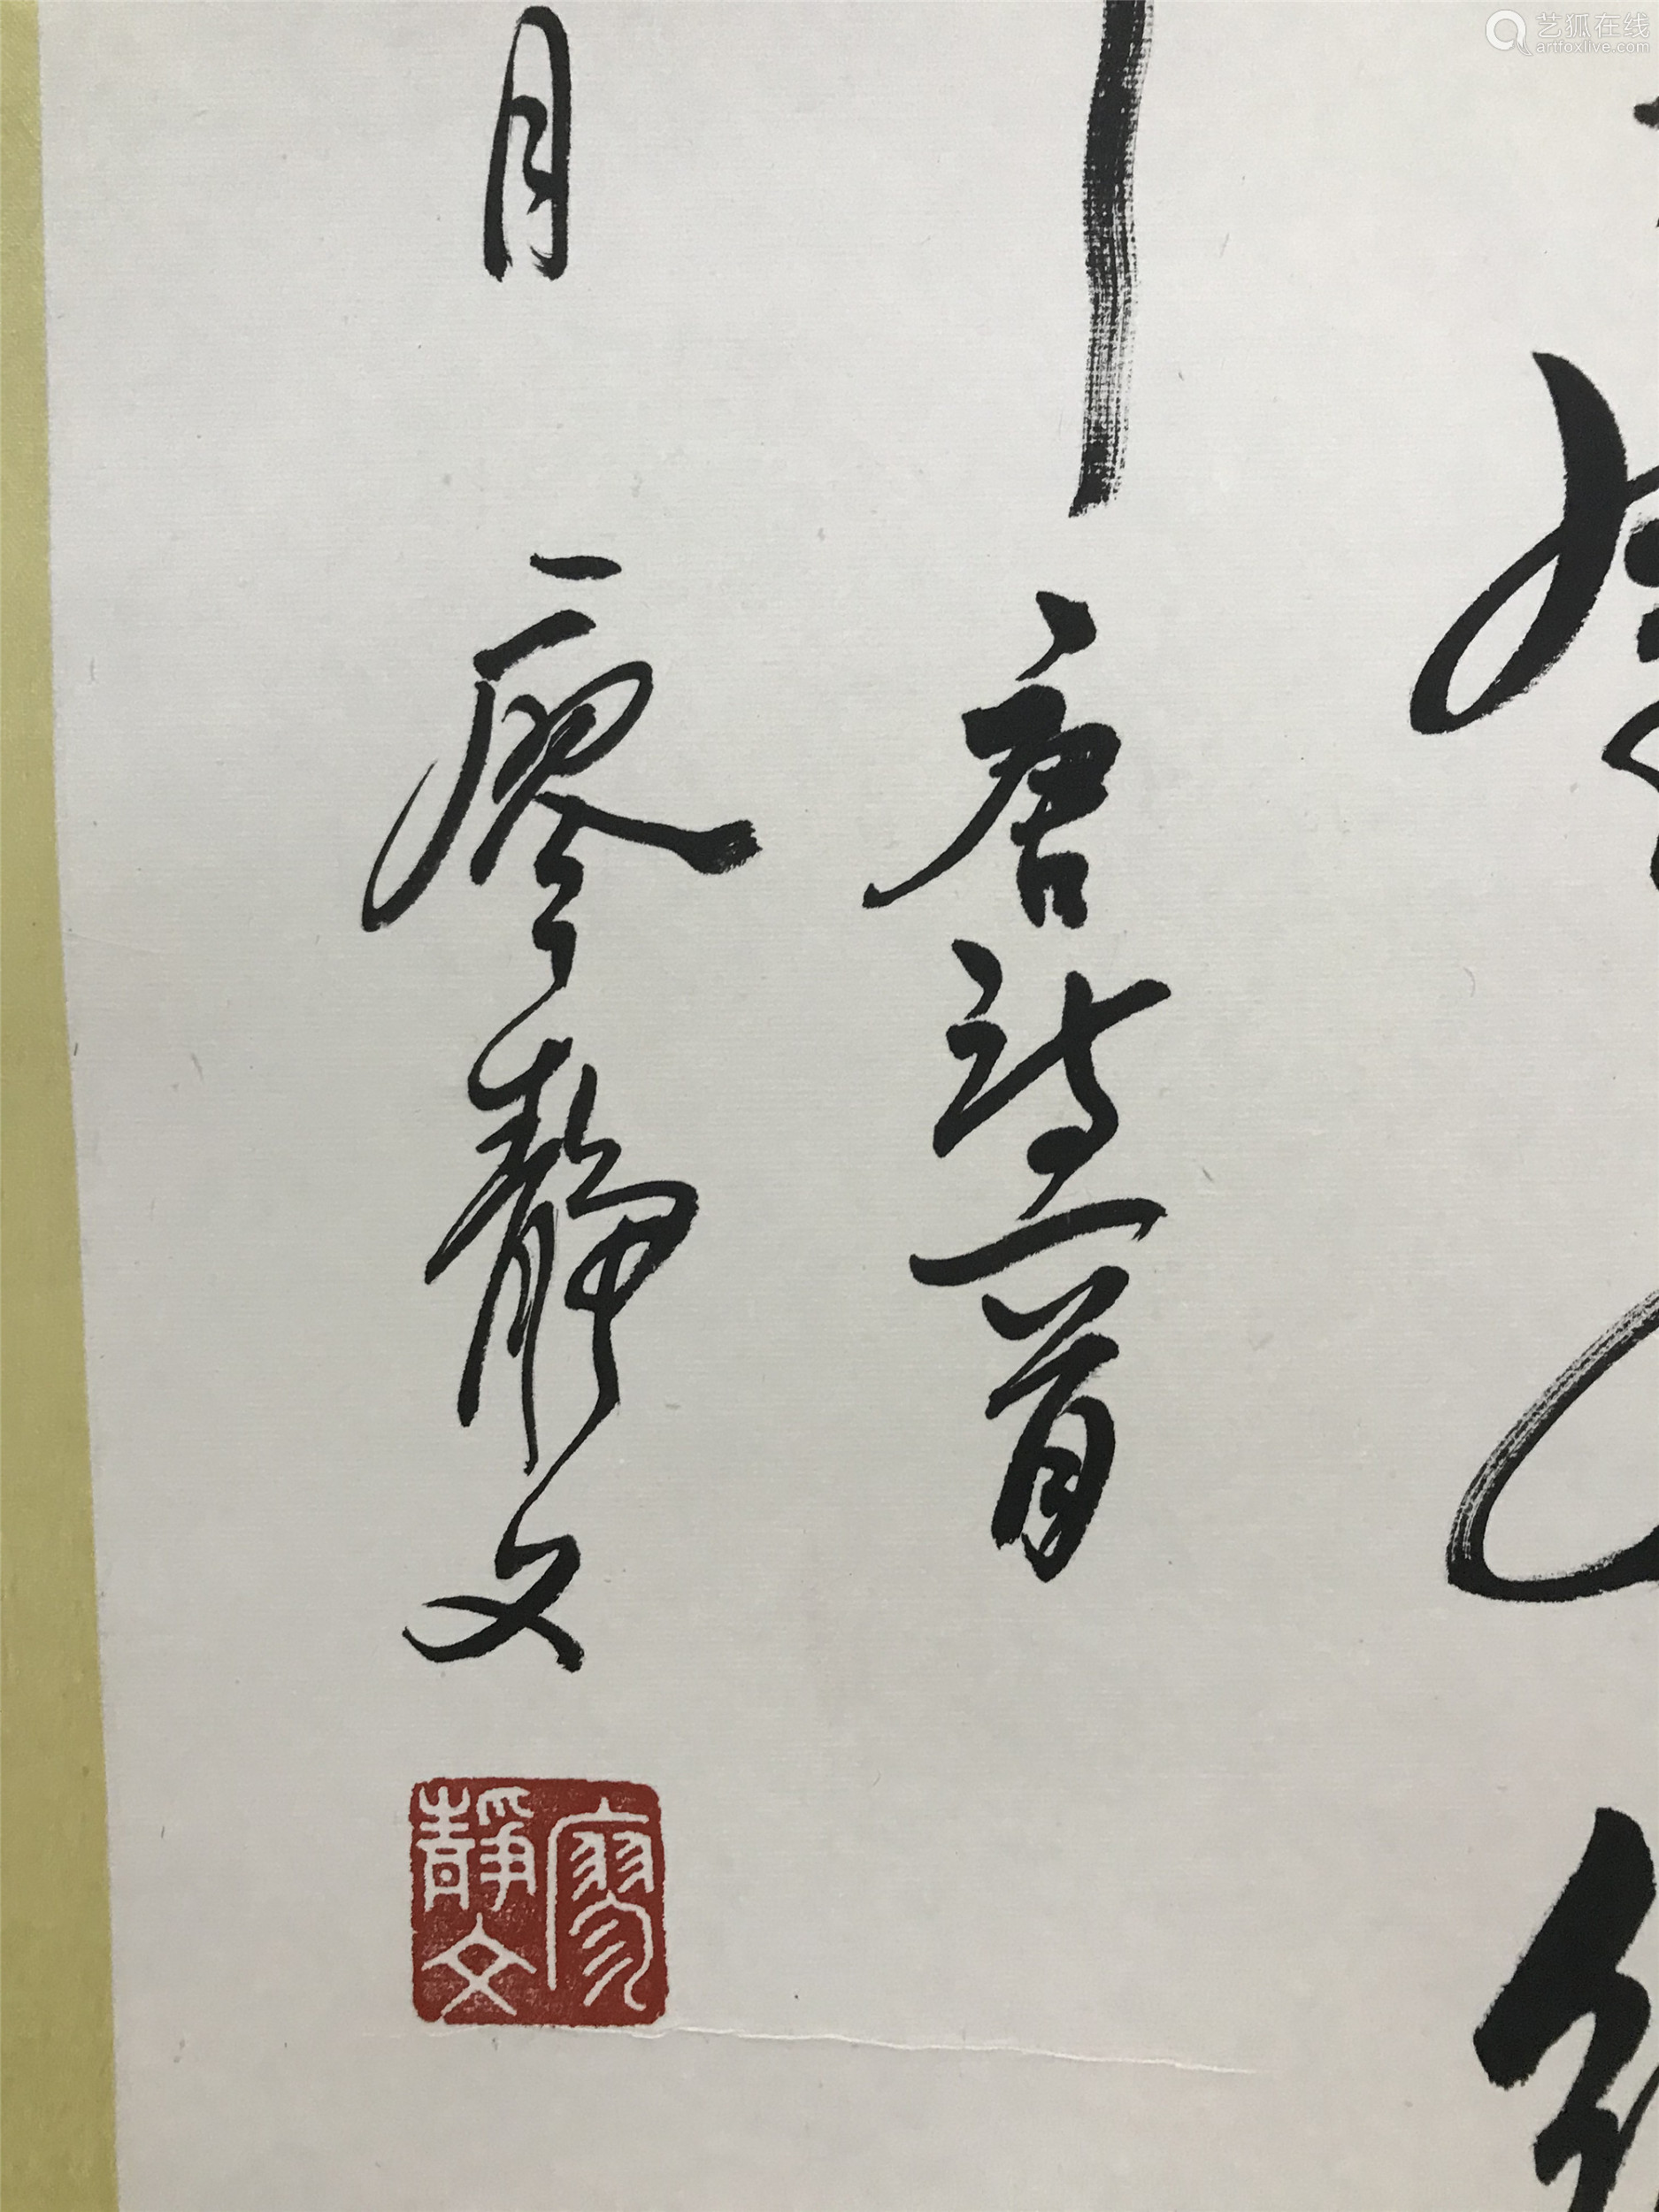 唐诗一首
月 廖静文
廖靜文
艺狐在线
artfoxlive.com